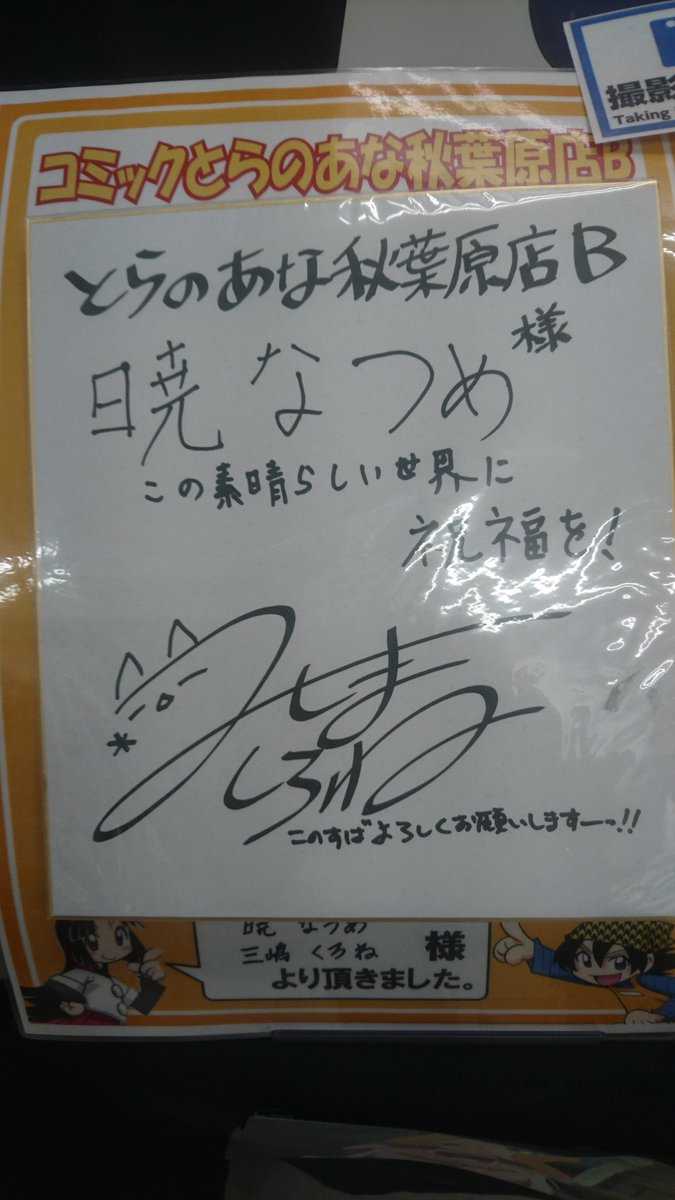 撮影
Taking
コミックとらのあな秋葉原店B
とらのあな秋葉原店B
様
暁 なつめ
この素晴らしい世界に
祝福を!
みしま
くろね
このすばよろしくお願いしますーっ!!
暁 なつめ
三嶋 くろね
様
より頂きました。